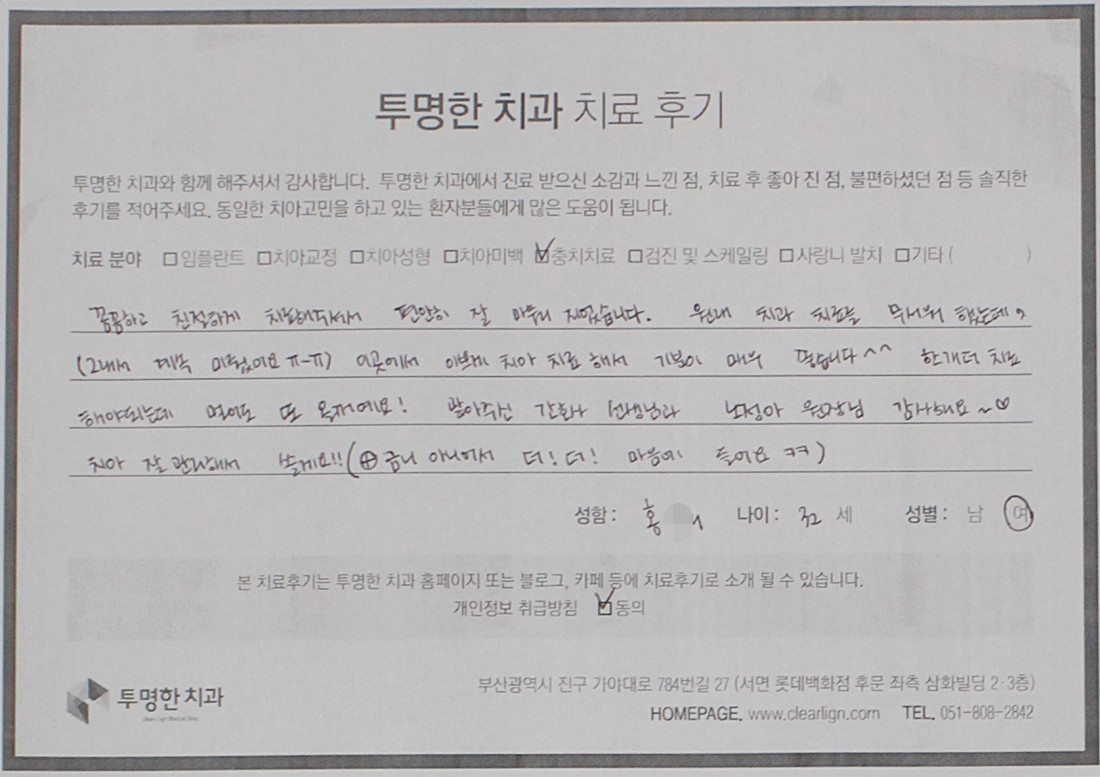 투명한 치과 치료 후기
투명한 치과와 함께 해주셔서 감사합니다. 투명한 치과에서 진료 받으신 소감과 느낀 점, 치료 후 좋아 진 점, 불편하셨던 점 등 솔직한
후기를 적어주세요. 동일한 치아고민을 하고 있는 환자분들에게 많은 도움이 됩니다.
치료 분야 □임플란트 □치아교정 □치아성형 □치아미백 ☑충치치료 □검진 및 스케일링 □사랑니 발치 □기타 ( )
꼼꼼하고 친절하게 치료해주셔서 편안히 잘 마무리 지었습니다. 원래 치과 치료를 무서워 했는데,
(그래서 계속 미뤘어요 ㅠ-ㅠ) 이곳에서 이쁘게 치아 치료 해서 기분이 매우 좋습니다^^ 한개더 치료
해야되는데 먼이도 또 올게예요! 맡아주신 간호사 선생님과 노정아 원장님 감사해요~♡
치아 잘 관리해서 쓸게요!! (⊕ 금니 아니어서 더! 더! 마음에 들어요 ㅋㅋ)
성함 : 홍 나이 : 32 세 성별 : 남 여
본 치료후기는 투명한 치과 홈페이지 또는 블로그, 카페 등에 치료후기로 소개 될 수 있습니다.
개인정보 취급방침 ☑동의
투명한 치과
부산광역시 진구 가야대로 784번길 27 (서면 롯데백화점 후문 좌측 삼화빌딩 2·3층)
HOMEPAGE. www.clearlign.com TEL. 051-808-2842